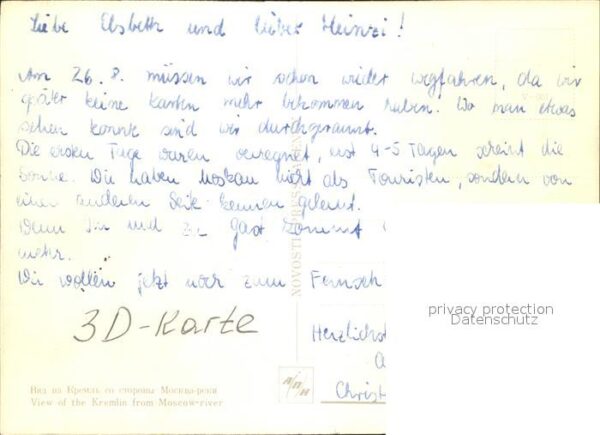 Liebe Elsbeth und lieber Heinzi!
Am 26.8. müssen wir schon wieder wegfahren, da wir
später keine Karten mehr bekommen haben. Wo man etwas
sehen konnte sind wir durchgerannt.
Die ersten Tage waren verregnet, erst 4-5 Tagen scheint die
Sonne. Wir haben Moskau nicht als Touristen, sondern von
einer anderen Seite kennen gelernt.
Wenn Ihr mal zu Gast kommt
mehr.
Wir wollen jetzt noch zum Fernseh
3D-Karte
Herzlichst
Christ
NOVOSTI PRESS
privacy protection
Datenschutz
Вид на Кремль со стороны Москва-реки
View of the Kremlin from Moscow-river